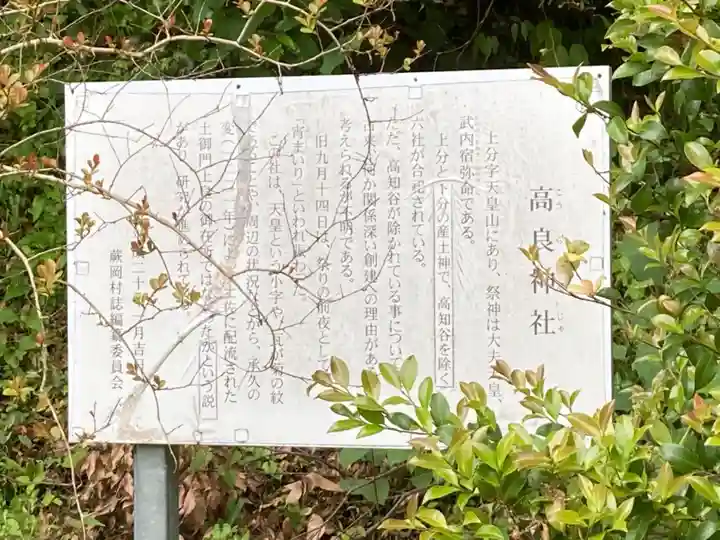 高良神社
こう じゃ
上分字天皇山にあり、祭神は大夫 皇、
武内宿弥命である。
上分と下分の産土神で、高知谷を除く
六社が合祀されている。
ただ、高知谷が除かれている事につい
古来 何か関係深い創建への理由があ
考えられるが不明である。
旧九月十四日は、祭りの前夜とし
「宵まいり」といわれ賑わ た。
この社は、天皇という小字や、 紋
周辺の状況 から、承久の
変( 二二 年)によ 佐に配流された
土御門上皇の御在所では た所という説
があり、研究 進められて
二十 月吉
蕨岡村誌編纂委員会